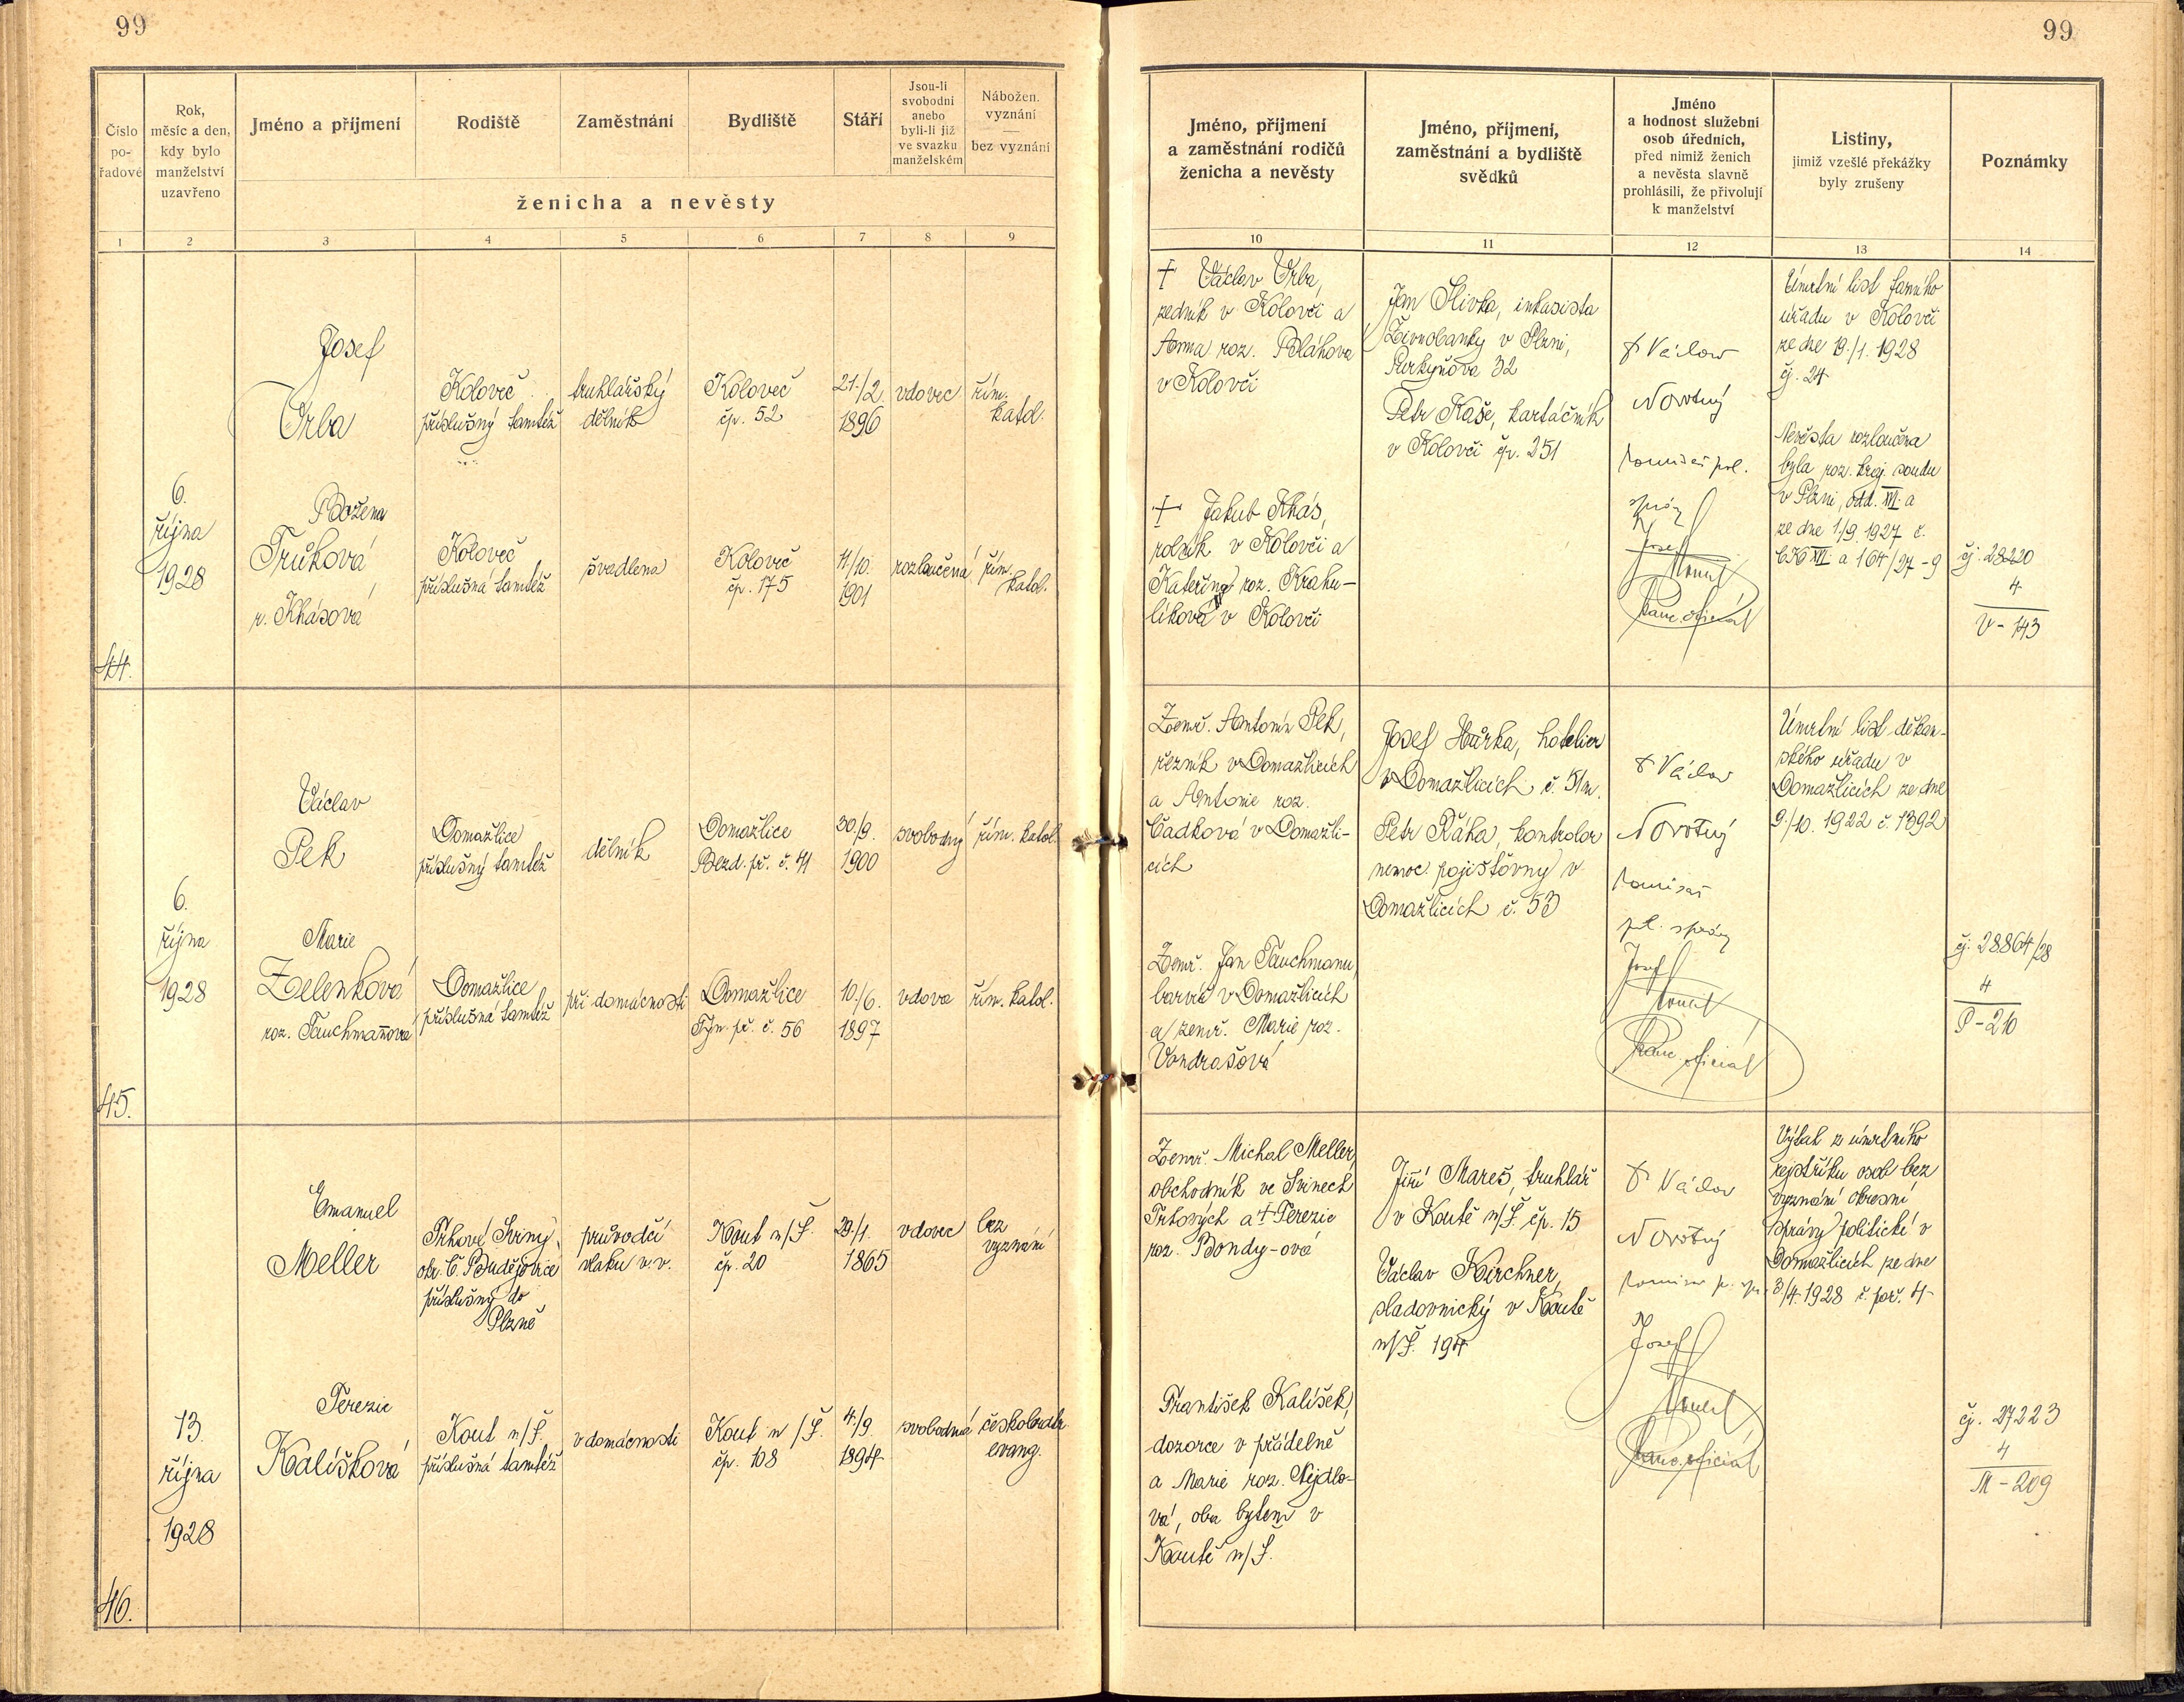 99
99
Číslo
po-
řadové
Rok,
měsíc a den,
kdy bylo
manželství
uzavřeno
Jméno a příjmení
Rodiště
Zaměstnání
Bydliště
Stáří
Jsou-li
svobodni
anebo
byli-li již
ve svazku
manželském
Nábožen.
vyznání
—
bez vyznání
ženicha a nevěsty
1
2
3
4
5
6
7
8
9
Jméno, příjmení
a zaměstnání rodičů
ženicha a nevěsty
Jméno, příjmení,
zaměstnání a bydliště
svědků
Jméno
a hodnost služební
osob úředních,
před nimiž ženich
a nevěsta slavně
prohlásili, že přivolují
k manželství
Listiny,
jimiž vzešlé překážky
byly zrušeny
Poznámky
10
11
12
13
14
44.
6.
října
1928
Josef
Vrba
Koloveč
příslušný tamtéž
truhlářský
dělník
Koloveč
čp. 52
21./2.
1896
vdovec
řím.
katol.
Božena
Trůková
r. Khásová
Koloveč
příslušná tamtéž
švadlena
Koloveč
čp. 175
11/10.
1901
rozloučená
řím.
katol.
† Václav Vrba,
zedník v Kolovči a
Anna roz. Bláhova
v Kolovči
† Jakub Khás,
rolník v Kolovči a
Kateřina roz. Krahu-
líková v Kolovči
Jan Slivka, inkasista
Živnobanky v Plzni,
Purkyňova 32
Petr Kaše, kartáčník
v Kolovči čp. 251
Václav
Novotný
komisař pol.
správy
Josef
kanc. oficiál
Úmrtní list farního
úřadu v Kolovči
ze dne 19./1. 1928
čj. 24
Nevěsta rozloučena
byla roz. kraj. soudu
v Plzni, odd. VII. a
ze dne 1/9. 1927 č.
Ck VII a 164/27-9
čj. 28220
4
V-143
45.
6.
října
1928
Václav
Pek
Domažlice
příslušný tamtéž
dělník
Domažlice
Bezd. př. č. 41
30./9.
1900
svobodný
řím. katol.
Marie
Zelenková
roz. Tauchmaňová
Domažlice
příslušná tamtéž
při domácnosti
Domažlice
Týn. př. č. 56
10./6.
1897
vdova
řím. katol.
Zemř. Antonín Pek,
řezník v Domažlicích
a Antonie roz.
Čadková v Domažli-
cích
Zemř. Jan Tauchmann,
barvíř v Domažlicích
a zemř. Marie roz.
Vondrašová
Josef Hůrka, hotelier
v Domažlicích č. 51 m.
Petr Ráha, kontrolor
nemoc. pojišťovny v
Domažlicích č. 53
Václav
Novotný
komisař
pol. správy
Josef
kanc. oficiál
Úmrtní list děkan-
ského úřadu v
Domažlicích ze dne
9./10. 1922 č. 1392
čj. 28864/28
4
P-210
46.
13.
října
1928
Emanuel
Meller
Trhové Sviny
okr. Č. Budějovice
příslušný do
Plzně
průvodčí
vlaku v.v.
Kout n/Š.
čp. 20
29./1.
1865
vdovec
bez
vyznání
Terezie
Kalíšková
Kout n/Š.
příslušná tamtéž
v domácnosti
Kout n/Š.
čp. 108
4./9.
1894
svobodná
českobratr.
evang.
Zemř. Michal Meller,
obchodník ve Svinech
Trhových a † Terezie
roz. Bondy-ová
František Kalíšek,
dozorce v přádelně
a Marie roz. Nejdlo-
vá, oba bytem v
Koutě n/Š.
Jiří Mareš, truhlář
v Koutě n/Š. čp. 15
Václav Kirchner,
sladovnický v Koutě
n/Š. 194
Václav
Novotný
komisař p. spr.
Josef
kanc. oficiál
Výtah z úmrtního
rejstříku osob bez
vyznání okresní
správy politické v
Domažlicích ze dne
3/4. 1928 č. poř. 4
čj. 27223
4
M-209